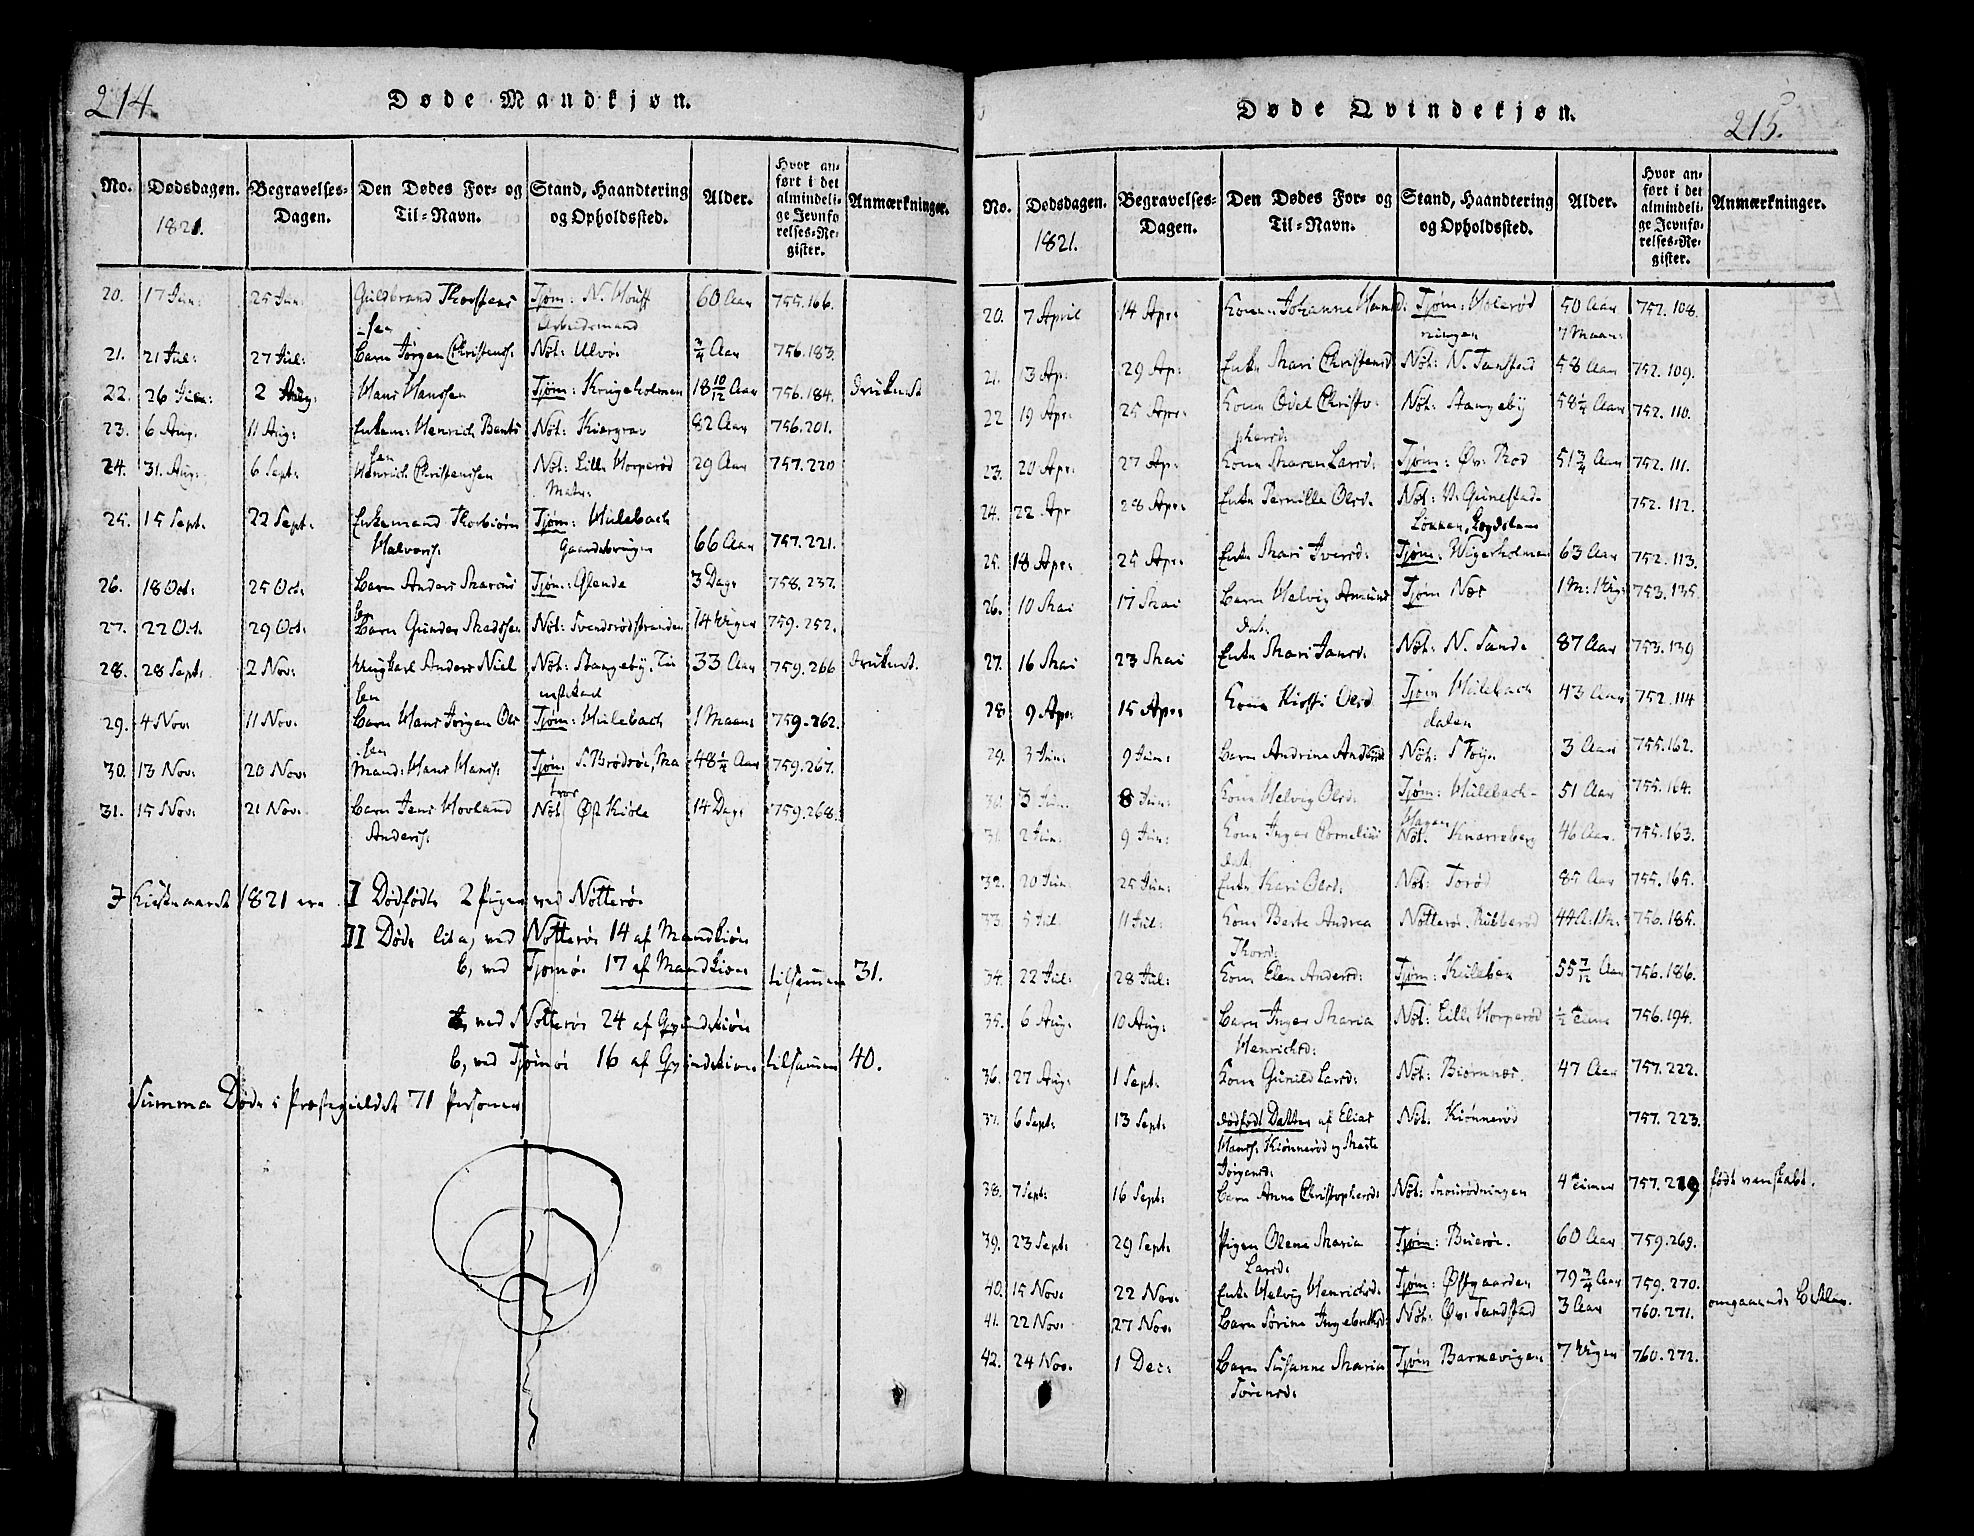 214.
Døde Mandkjøn.
No.
Dødsdagen.
1821.
Begravelses-
Dagen.
Den Dødes For- og
Til-Navn.
Stand, Haandtering
og Opholdssted.
Alder.
Hvor an-
ført i det
almindeli-
ge Jevnfø-
relses-Re-
gister.
Anmærkninger.
20. 17 Jun: 25 Jun: Guldbrand Thorstens Tjøm: N. 60 Aar 755.166.
-sen Arbeidsmand
21. 21 Jul: 27 Jul: Barn Jørgen Christenss. Nøt: Ulvø. 3/4 Aar 756.183.
22. 26 2 Aug: Hans Hanssen Tjøm: Krugeholmen 18 10/12 Aar 756.184. druknet
23. 6 Aug. 11 Aug: Enkem: Henrich Bents Nøt: 82 Aar 756.201.
sen
24. 31. Aug: 6 Sept: Henrich Christenssen Nøt: Lille Horperød 29 Aar 757.220
Matr:
25. 15 Sept: 22 Sept: Enkemand Thorbiørn Tjøm: Hulebach
Halvorss. Gaardebruger 66 Aar 757.221.
26. 18 Oct: 25 Oct: Barn Anders Marcus Tjøm: Glende 3 Dage 758.237.
sen
27. 22 Oct. 29 Oct: Barn Gunder Madssen Nøt: Svendsrødstranden 14 Uger 759.252.
28. 28 Sept: 2 Nov: Ungkarl Anders Niel Nøt: Stangeby, 33 Aar 759.266 druknet.
sen
29. 4 Nov: 11 Nov. Barn Hans Jørgen Ols Tjøm: Hulebach 1 Maan: 759.262.
sen
30. 13 Nov: 20 Nov: Mand: Hans Hanss. Tjøm: S. Brødrøe, Ma 48 1/4 Aar 759.267.
tros
31. 15 Nov: 21 Nov. Barn Jens Hovland Nøt: Øst Kiøle 14 Dage 759.268.
Anderss.
I Kirkeaaret 1821 ere I Dødfødte 2 Piger ved Nøtterøe
II Døde lit a, ved Nøtterøe 14 af Mandkiøn
b, ved Tjømøe 17 af Mandkiøn tilsammen 31.
a, ved Nøtterøe 24 af Qvindekiøn
b, ved Tjømøe 16 af Qvindekiøn tilsammen 40.
Summa Døde i Præstegieldet 71 Personer
215.
Døde Qvindekjøn.
No.
Dødsdagen.
1821.
Begravelses-
Dagen.
Den Dødes For- og
Til-Navn.
Stand, Haandtering
og Opholdssted.
Alder.
Hvor an-
ført i det
almindeli-
ge Jevnfø-
relses-Re-
gister.
Anmærkninger.
20. 7 April 14 Apr: Kone Johanne Hansd: Tjøm: Holerød 50 Aar 752.108.
ningen 7 Maan:
21. 13 Ap: 29 Ap: Enke Mari Christensd Nøt: N. Tanstad 58 Aar 752.109.
22 19 Apr: 25 Apr: Kone Odel Christo- Nøt: Stangeby 58 1/4 Aar 752.110.
phersd:
23. 20 Apr: 27 Ap: Kone Maren Larsd: Tjøm: Øv: Rød 51 3/4 Aar 752.111.
24. 22 Apr 28 Apr: Enke Pernille Olsd. Nøt: V. Gunestad- 752.112.
Løkken, Lægdslem
25. 18 Apr: 25 Apr: Enke Mari Iversd: Tjøm: Vigerholmen 63 Aar 752.113.
26. 10 Mai 17 Mai Barn Helvig Amund Tjøm Nes 1 M: 1 Ug: 753.135.
dat:
27. 16 Mai 23 Mai Enke Mari Jansd: Nøt: N. Sande 87 Aar 753.139
28 9 Apr: 15 Apr: Kone Kirsti Olsd Tjøm Hulebach 43 Aar 752.114
dalen
29. 3 Jun: 9 Jun: Barn Andrine Nøt: S. Føyn. 3 Aar 755.162.
30. 3 Jun: 8 Jun: Kone Helvig Olsd: Tjøm: Hulebach- 51 Aar 755.164.
Hagen
31. 2 Jun: 9 Jun: Kone Inger Cornelius Nøt. Knarreberg 46 Aar. 755.163.
dat
32. 20 Jun: 25 Jun: Enke Kari Olsd: Nøt: Torød 85 Aar 755.165.
33. 5 Jul. 11 Jul: Kone Berte Andrea Nøtterøe. Rubberød 44 A: 1 M. 756.185.
Thorsd:
34. 22 Jul: 28 Jul: Kone Elen Andersd: Tjøm: 55 7/12 Aar 756.186.
35. 6 Aug: 10 Aug: Barn Inger Maria Nøt: Lille Horperød 1/2 Time 756.194.
Henrichsd:
36. 27 Aug: 1 Sept: Kone Gunild Larsd: Nøt: Biørnnes. 47 Aar 757.222.
37. 6 Sept: 13 Sept: dødfødt Datter af Elias Nøt: Kiønnerød 757.223.
Hanss. Kiønnerød og Marte
Jørgensd:
38. 7 Sept: 16 Sept: Barn Anne Christophersd: Nøt: Snorødningen 4 Timer 757.219 født vanskabt.
39. 23 Sept: 29 Sept: Pigen Olene Maria Tjøm: Buerøe. 60 Aar 759.269.
Larsd:
40. 15 Nov: 22 Nov: Enke Helvig Henrichsd: Tjøm: Østgaarden 79 3/4 Aar 759.270.
41. 22 Nov: 27 Nov. Barn Sørine Ingebrethsd Nøt: Øv: Tandstad 3 Aar 760.271. omgaaende Betler.
42. 24 Nov. 1 Dec: Barn Susanne Maria Tjøm Barnevigen 7 Uger 760.272.
Sørensd: